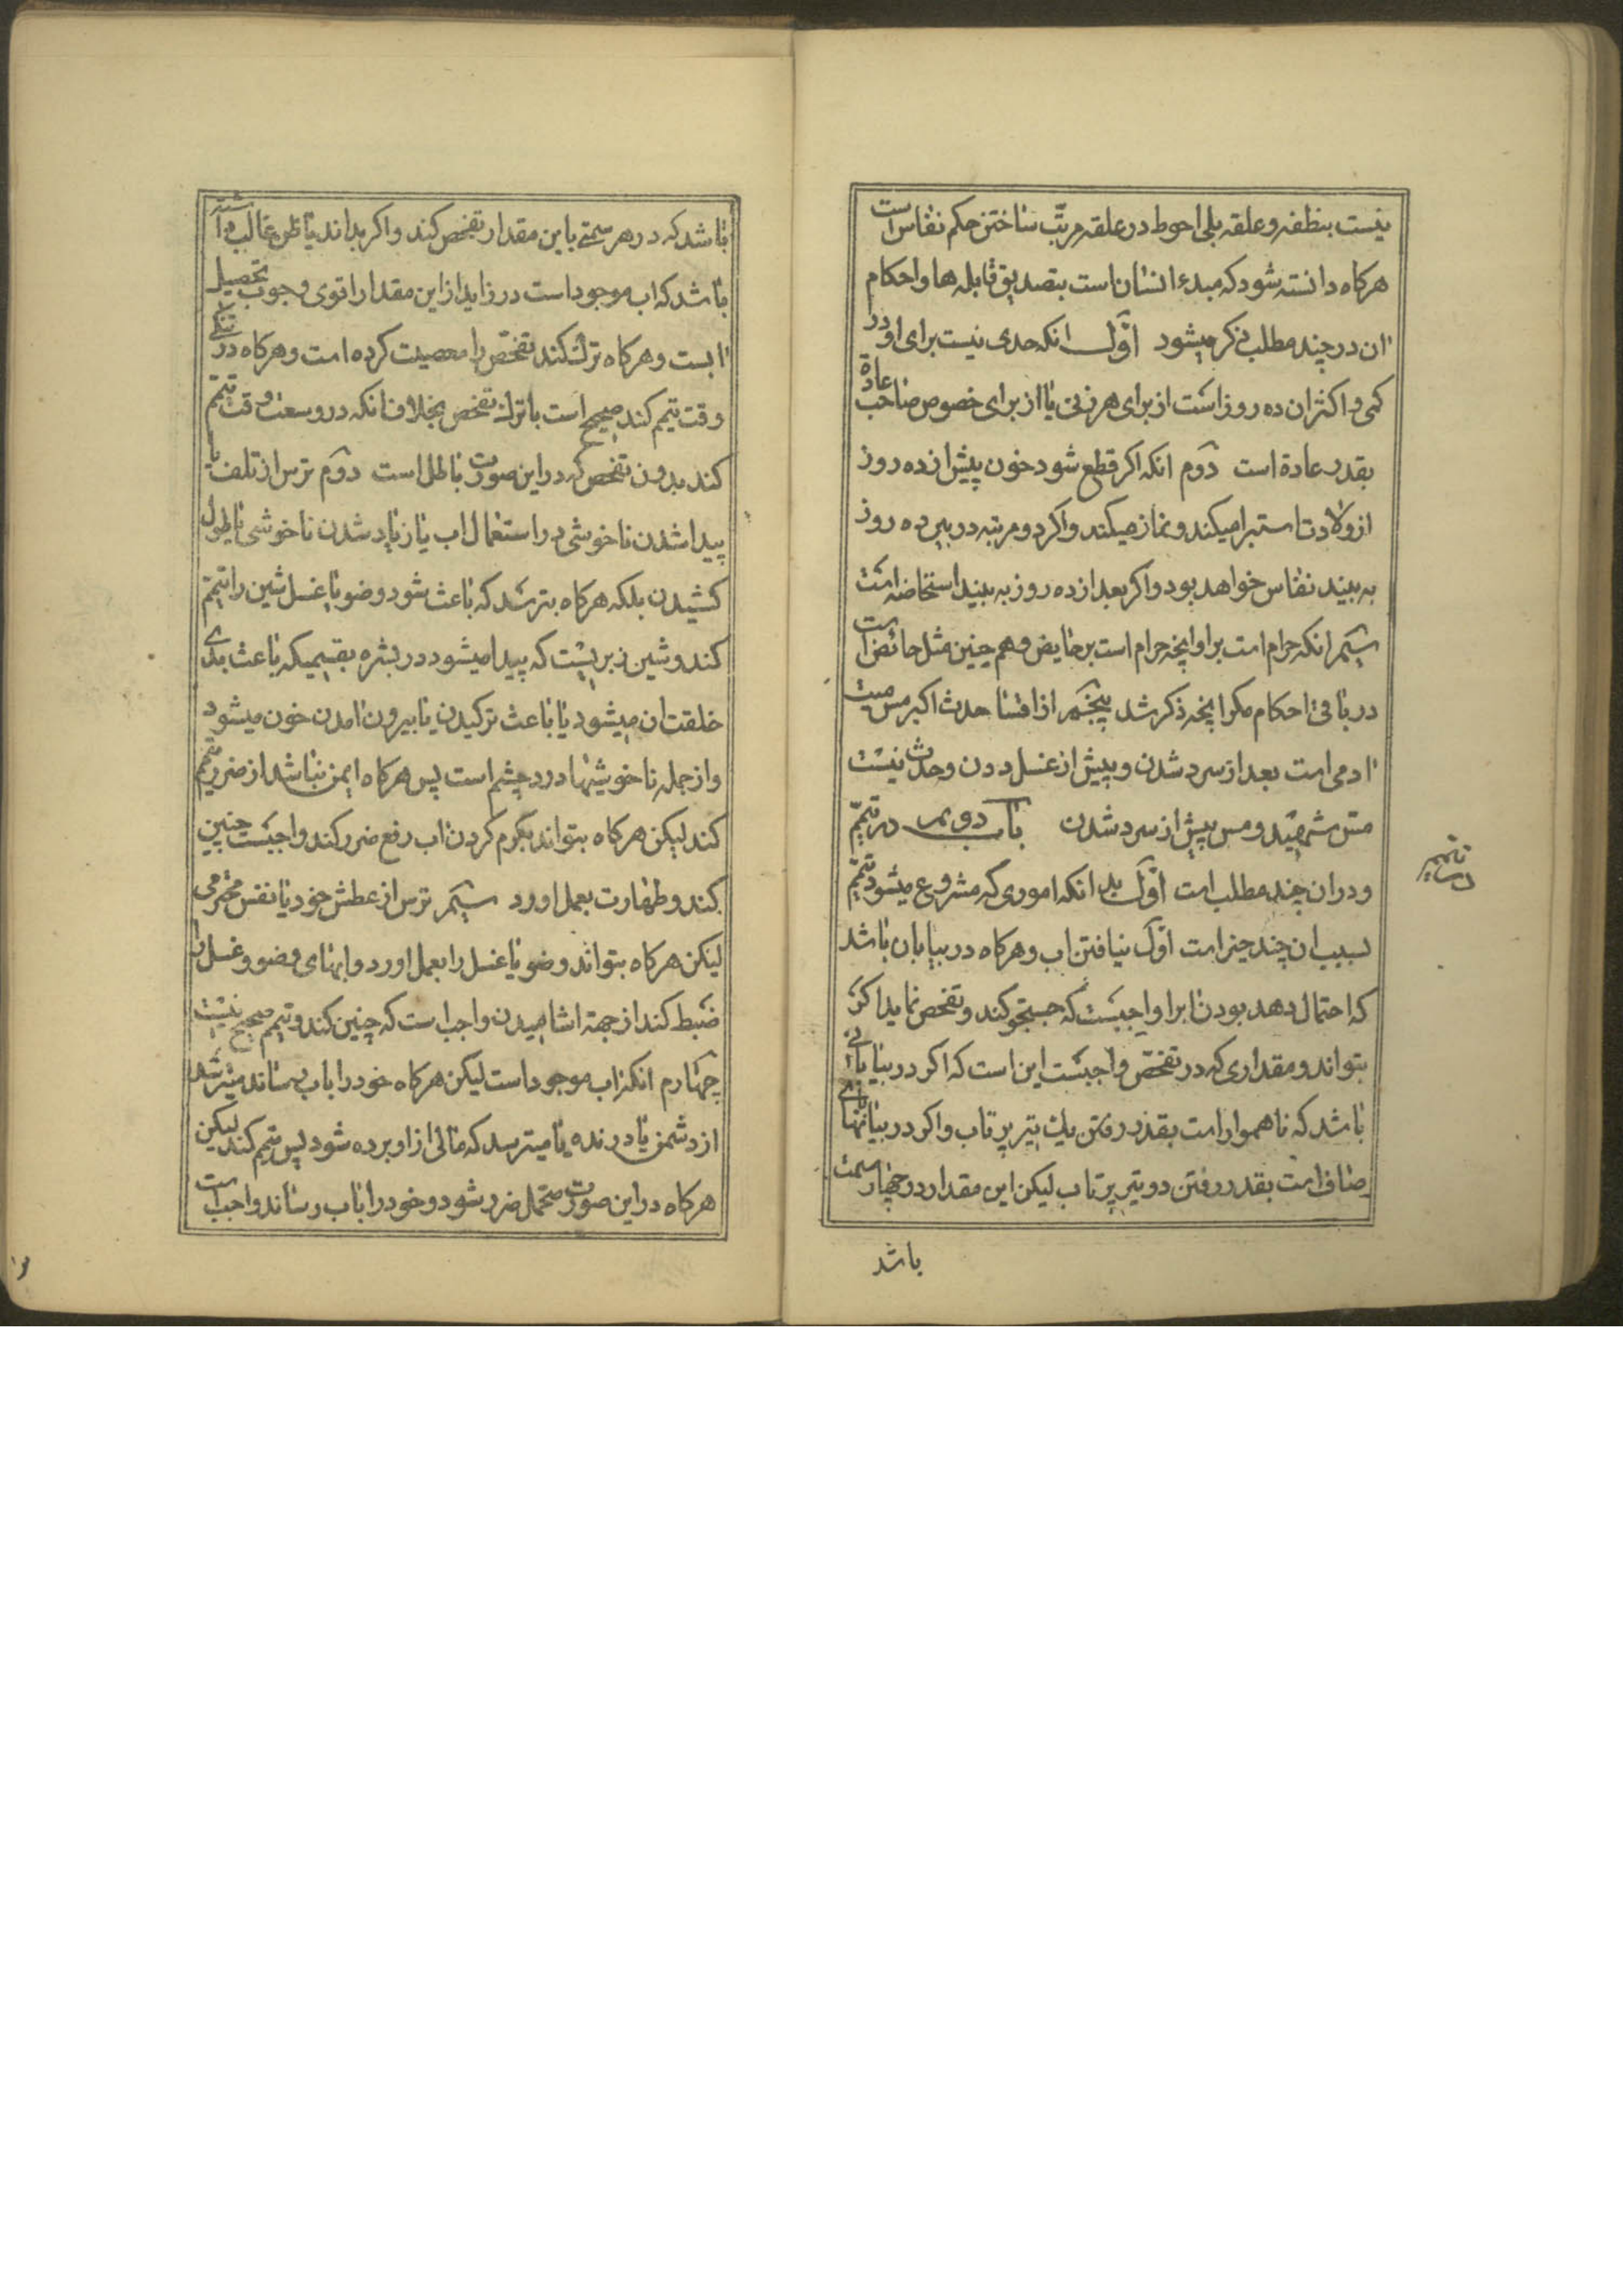 نیست بنطفه و علقه بلی احوط در علقه مرتب ساختن حکم نفاس است
هرکاه دانسته شود که مبدء انسان است بتصدیق قابله ها و احکام
ان در چند مطلب ذکر میشود اوّل انکه حدی نیست برای او در
کمی و اکثر ان ده روز است از برای هر زنی یا از برای خصوص صاحب عادة
بقدر عادة است دوّم انکه اکر قطع شود خون پیش از ده روز
از ولادت استبرا میکند و نماز میکند و اکر دو مرتبه در بین ده روز
به بیند نفاس خواهد بود و اکر بعد از ده روز به بیند استحاضه است
سیّم انکه حرام است بر او انچه حرام است بر حایض و هم چنین مثل حائض است
در باقی احکام مکر انچه ذکر شد پنجم از اقسا حدث اکبر مس میت
ادمی است بعد از سرد شدن و پیش از غسل دادن و حدث نیست
مس شهید و مس پیش از سرد شدن باب دویم در تیمّم
و در ان چند مطلب است اوّل بدانکه اموری که مشروع میشود تیمّم
بسبب ان چند چیز است اوّل نیافتن اب و هرکاه در بیابان باشد
که احتمال دهد بودن اب را واجبست که جستجو کند و تفحص نماید اکر
بتواند و مقداری که در تفحص واجبست این است که اکر در بیابانی
باشد که ناهموار است بقدر رفتن یک تیر پرتاب و اکر در بیابانهای
صاف است بقدر رفتن دو تیر پرتاب لیکن این مقدار در چهار سمت
باشد
در تیمم
باشد که در هر سمتی باین مقدار تفحص کند و اکر بداند یا ظن غالب داشته
باشد که اب موجود است در زاید از این مقدار اقوی وجوب تحصیل
ابست و هرکاه ترک کند تفحص را معصیت کرده است و هرکاه در تنکی
وقت تیمم کند صحیح است با ترک تفحص بخلاف انکه در وسعت وقت تیمم
کند بدون تفحص که در این صورت باطل است دوّم ترس از تلف یا
پیدا شدن ناخوشی در استعمال اب یا زیاد شدن ناخوشی یا طول
کشیدن بلکه هرکاه بترسد که باعث شود وضو یا غسل شین را تیمّم
کند و شین زبریست که پیدا میشود در بشره بقسمیکه باعث بدی
خلقت ان میشود یا باعث ترکیدن یا بیرون امدن خون میشود
و از جمله ناخوشیها درد چشم است پس هرکاه ایمن نباشد از ضرر تیمم
کند لیکن هرکاه بتواند بکرم کردن اب رفع ضرر کند واجبست چنین
کند و طهارت بعمل اورد سیّم ترس از عطش خود یا نفس محترمی
لیکن هرکاه بتواند وضو یا غسل را بعمل اورد و ابهای وضو و غسل را
ضبط کند از جهة اشامیدن واجب است که چنین کند و تیمم صحیح نیست
چهارم انکه اب موجود است لیکن هرکاه خود را باب برساند میترسد
از دشمن یا درنده یا میترسد که مالی از او برده شود پس تیمم کند لیکن
هرکاه در این صورت متحمل ضرر شود و خود را باب رساند واجب است